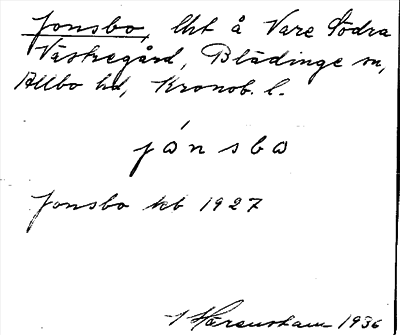 Jonsbo, lht å Vare Södra
Västregård, Blädinge sn,
Allbo hd, Kronob. l.
jònsbo
Jonsbo kb 1927
1936